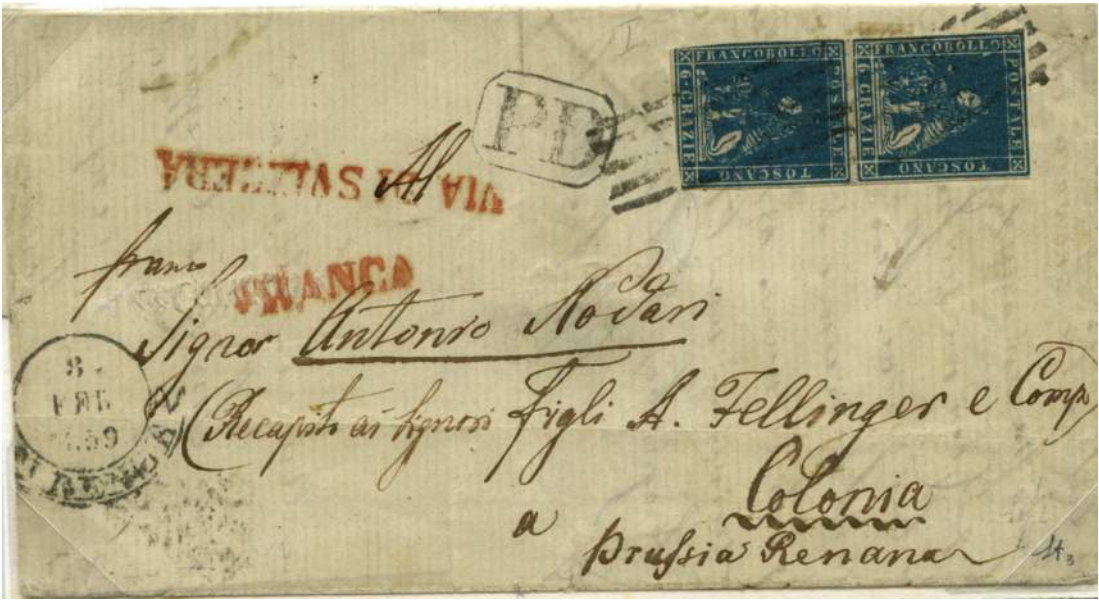 FRANCOBOLLO POSTALE TOSCANO 6 · CRAZIE
FRANCOBOLLO POSTALE TOSCANO 6 · CRAZIE
PD
VIA DI SVIZZERA
Al
franco
FRANCA
Signor Antonio Nodari
8
FEB
1859
FIRENZE
(Recapito ai Signori Figli A. Fellinger e Comp)
a Colonia
Prussia Renana